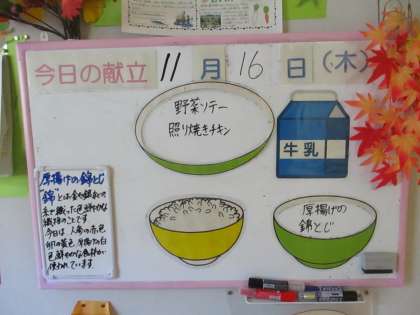 今日の献立 11月16日(木)
野菜ソテー
照り焼きチキン
牛乳
厚揚げの
錦とじ
厚揚げの錦とじ
錦とは金や銀などの
糸で織った色鮮やかな
織物のことです
今日は、人参の赤色
卵の黄色、厚揚げの白
色、鮮やかな食材が
使われています